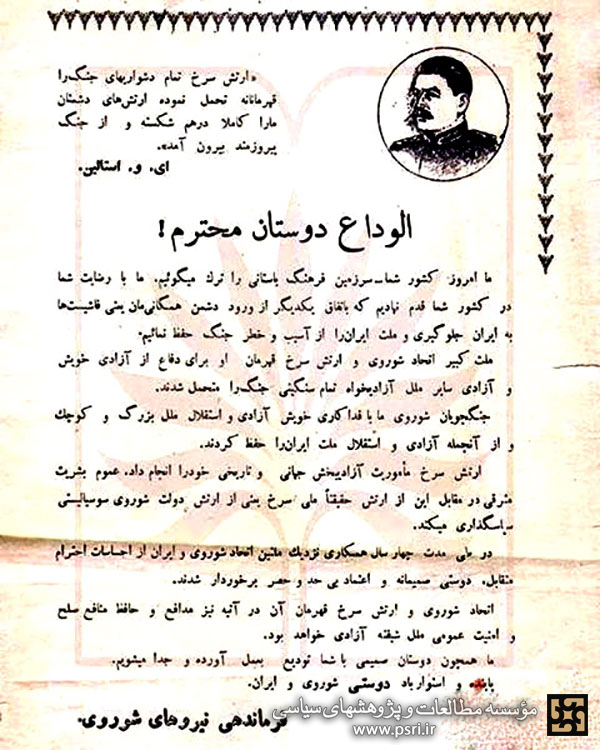 «ارتش سرخ تمام دشواریهای جنگ‌را
قهرمانانه تحمل نموده ارتش‌های دشمنان
مارا کاملا درهم شکسته و از جنگ
پیروزمند بیرون آمد».
ای. و. استالین.
الوداع دوستان محترم!
ما امروز کشور شما_سرزمین فرهنگ باستانی را ترک میگوئیم. ما با رضایت شما
در کشور شما قدم نهادیم که باتفاق یکدیگر از ورود دشمن همگانی‌مان یعنی فاشیست‌ها
به ایران جلوگیری و ملت ایران‌را از آسیب و خطر جنگ حفظ نمائیم.
ملت کبیر اتحاد شوروی و ارتش سرخ قهرمان او برای دفاع از آزادی خویش
و آزادی سایر ملل آزادیخواه تمام سنگینی جنگ‌را متحمل شدند.
جنگجویان شوروی ما با فداکاری خویش آزادی و استقلال ملل بزرگ و کوچک
و از آنجمله آزادی و استقلال ملت ایران‌را حفظ کردند.
ارتش سرخ مأموریت آزادیبخش جهانی و تاریخی خودرا انجام داد. عموم بشریت
مترقی در مقابل این از ارتش حقیقتاً ملی سرخ یعنی از ارتش دولت شوروی سوسیالیستی
سپاسگذاری میکند.
در طی مدت چهار سال همکاری نزدیک ملتین اتحاد شوروی و ایران از احساسات احترام
متقابل، دوستی صمیمانه و اعتماد بی حد و حصر برخوردار شدند.
اتحاد شوروی و ارتش سرخ قهرمان آن در آتیه نیز مدافع و حافظ منافع صلح
و امنیت عمومی ملل شیفته آزادی خواهد بود.
ما همچون دوستان صمیمی با شما تودیع بعمل آورده و جدا میشویم.
پاینده و استوار باد دوستی شوروی و ایران.
فرماندهی نیروهای شوروی.
مؤسسه مطالعات و پژوهشهای سیاسی
www.psri.ir